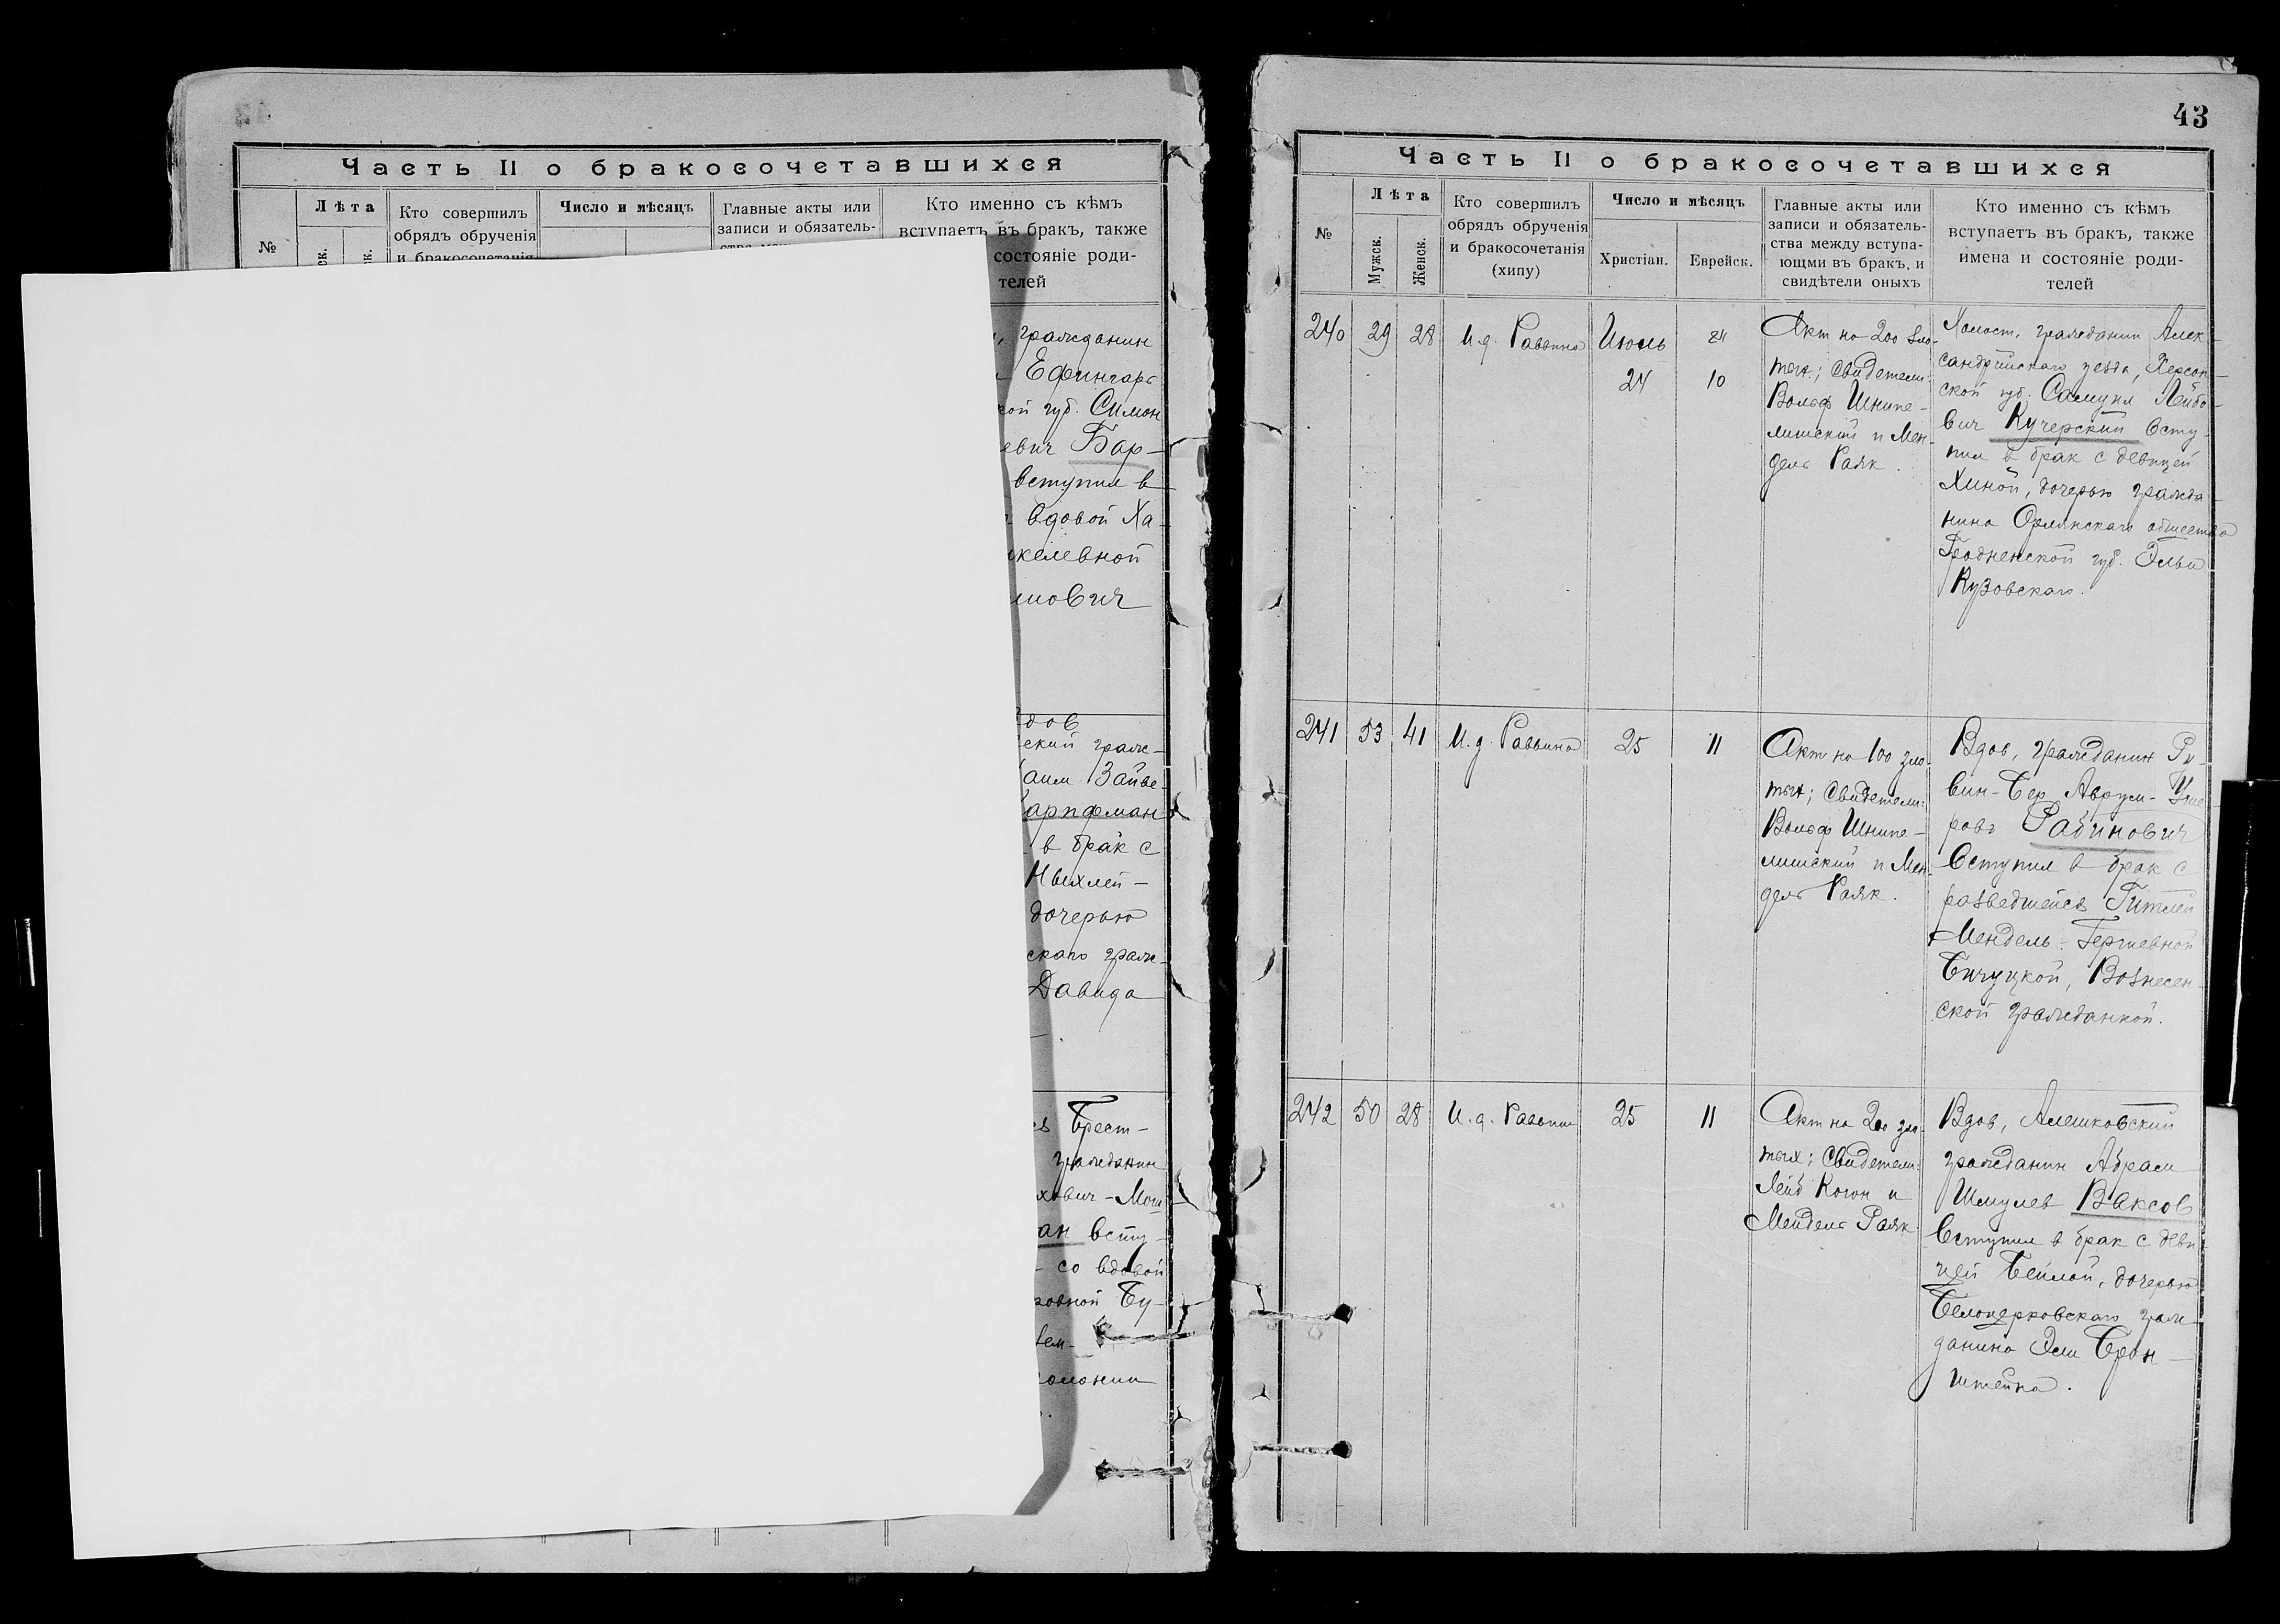 Часть II о бракосочетавшихся
№
Лѣта
Кто совершилъ
обрядъ обрученія
и бракосочетанія
Число и мѣсяцъ
Главные акты или
записи и обязатель-
Кто именно съ кѣмъ
вступаетъ въ бракъ, также
состояніе роди-
телей
гражданин
Ефингарь
кой губ. Симон
евич Бар-
вступил в
вдовой Ха-
келевной
мович
дов
ский граж-
аим Зайве-
арпфман
в брак с
Ныхлей-
дочерью
скаго граж-
Давида
Брест-
гражданин
хович-Мош
ан всту-
со вдовой
ровной Бу-
лонии
43
Часть II о бракосочетавшихся
№
Лѣта
Мужск.
Женск.
Кто совершилъ
обрядъ обрученія
и бракосочетанія
(хипу)
Число и мѣсяцъ
Христіан.
Еврейск.
Главные акты или
записи и обязатель-
ства между вступа-
ющми въ бракъ, и
свидѣтели оныхъ
Кто именно съ кѣмъ
вступаетъ въ бракъ, также
имена и состояніе роди-
телей
240 29 28 И.д. Раввина Июль
24 10
Акт на 200 зло-
тых; Свидетели:
Вольф Шнипе-
лишский и Мен-
дель Раяк.
Холост. гражданин Алек-
сандрийскаго уезда, Херсон-
ской губ. Самуил Лейбо-
вич Кучерский всту-
пил в брак с девицей
Хиной, дочерью гражда-
нина Орлянскаго общества
Гродненской губ. Эльи
Кузовскаго.
241 53 41 И.д. Раввина 25 11
Акт на 100 зло-
тых; Свидетели:
Вольф Шнипе-
лишский и Мен-
дель Раяк.
Вдов, гражданин Ру-
вин-Бер Аврум-Уше-
ров Рабинович
Вступил в брак с
разведшейся Гитлей
Мендель-Гершевной
Бичуцкой, Вознесен-
ской гражданкой.
242 50 28 И.д. Раввин 25 11
Акт на 200 зло-
тых; Свидетели:
Лейб Коган и
Мендель Раяк
Вдов, Алешковский
гражданин Абрам
Шмулев Ваксов
Вступил в брак с деви-
цей Бейлой, дочерью
Белоцерковскаго граж-
данина Эли Брон-
штейна.